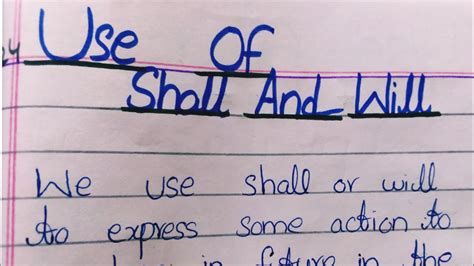 24
Use Of
Shall And Will
We use shall or will
to express some action to
in future in the